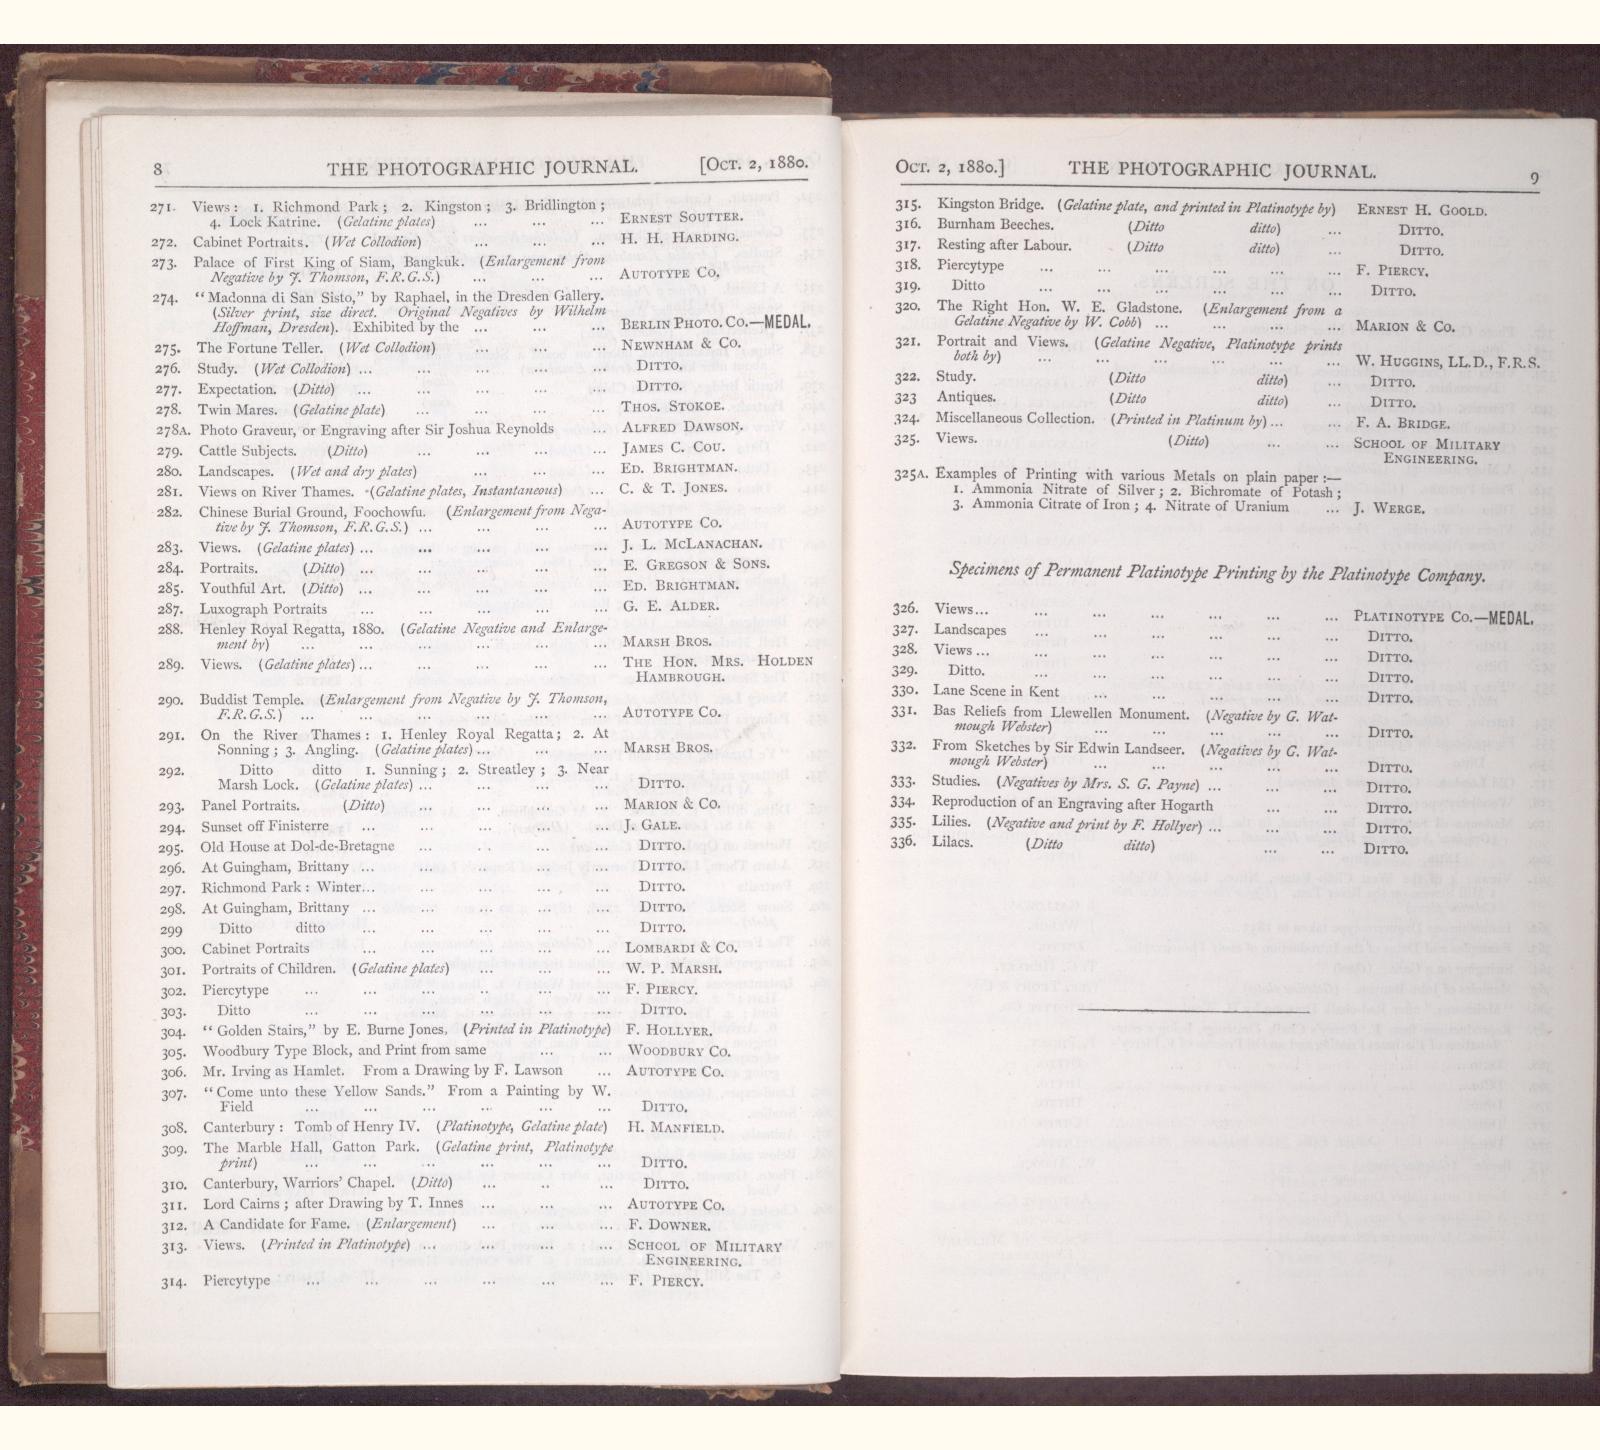 8 THE PHOTOGRAPHIC JOURNAL. [Oct. 2, 1880.
271. Views: 1. Richmond Park; 2. Kingston; 3. Bridlington;
4. Lock Katrine. (Gelatine plates) ... ... ... ERNEST SOUTTER.
272. Cabinet Portraits. (Wet Collodion) ... ... ... H. H. HARDING.
273. Palace of First King of Siam, Bangkuk. (Enlargement from
Negative by J. Thomson, F.R.G.S.) ... ... ... AUTOTYPE CO.
274. "Madonna di San Sisto," by Raphael, in the Dresden Gallery.
(Silver print, size direct. Original Negatives by Wilhelm
Hoffman, Dresden). Exhibited by the ... ... ... BERLIN PHOTO. CO.—MEDAL.
275. The Fortune Teller. (Wet Collodion) ... ... ... NEWNHAM & CO.
276. Study. (Wet Collodion) ... ... ... ... ... DITTO.
277. Expectation. (Ditto) ... ... ... ... ... DITTO.
278. Twin Mares. (Gelatine plate) ... ... ... ... THOS. STOKOE.
278A. Photo Graveur, or Engraving after Sir Joshua Reynolds ... ALFRED DAWSON.
279. Cattle Subjects. (Ditto) ... ... ... ... JAMES C. COU.
280. Landscapes. (Wet and dry plates) ... ... ... ED. BRIGHTMAN.
281. Views on River Thames. (Gelatine plates, Instantaneous) ... C. & T. JONES.
282. Chinese Burial Ground, Foochowfu. (Enlargement from Nega-
tive by J. Thomson, F.R.G.S.) ... ... ... ... AUTOTYPE CO.
283. Views. (Gelatine plates) ... ... ... ... ... J. L. MCLANACHAN.
284. Portraits. (Ditto) ... ... ... ... ... E. GREGSON & SONS.
285. Youthful Art. (Ditto) ... ... ... ... ... ED. BRIGHTMAN.
287. Luxograph Portraits ... ... ... ... ... G. E. ALDER.
288. Henley Royal Regatta, 1880. (Gelatine Negative and Enlarge-
ment by) ... ... ... ... ... ... MARSH BROS.
289. Views. (Gelatine plates) ... ... ... ... ... THE HON. MRS. HOLDEN
HAMBROUGH.
290. Buddist Temple. (Enlargement from Negative by J. Thomson,
F.R.G.S.) ... ... ... ... ... ... AUTOTYPE CO.
291. On the River Thames: 1. Henley Royal Regatta; 2. At
Sonning; 3. Angling. (Gelatine plates) ... ... ... MARSH BROS.
292. Ditto ditto 1. Sunning; 2. Streatley; 3. Near
Marsh Lock. (Gelatine plates) ... ... ... ... DITTO.
293. Panel Portraits. (Ditto) ... ... ... ... MARION & CO.
294. Sunset off Finisterre ... ... ... ... ... J. GALE.
295. Old House at Dol-de-Bretagne ... ... ... ... DITTO.
296. At Guingham, Brittany ... ... ... ... ... DITTO.
297. Richmond Park: Winter... ... ... ... ... DITTO.
298. At Guingham, Brittany ... ... ... ... ... DITTO.
299 Ditto ditto ... ... ... ... ... DITTO.
300. Cabinet Portraits ... ... ... ... ... LOMBARDI & CO.
301. Portraits of Children. (Gelatine plates) ... ... ... W. P. MARSH.
302. Piercytype ... ... ... ... ... ... F. PIERCY.
303. Ditto ... ... ... ... ... ... DITTO.
304. "Golden Stairs," by E. Burne Jones, (Printed in Platinotype) F. HOLLYER.
305. Woodbury Type Block, and Print from same ... ... WOODBURY CO.
306. Mr. Irving as Hamlet. From a Drawing by F. Lawson ... AUTOTYPE CO.
307. "Come unto these Yellow Sands." From a Painting by W.
Field ... ... ... ... ... ... DITTO.
308. Canterbury: Tomb of Henry IV. (Platinotype, Gelatine plate) H. MANFIELD.
309. The Marble Hall, Gatton Park. (Gelatine print, Platinotype
print) ... ... ... ... ... ... DITTO.
310. Canterbury, Warriors' Chapel. (Ditto) ... ... ... DITTO.
311. Lord Cairns; after Drawing by T. Innes ... ... ... AUTOTYPE CO.
312. A Candidate for Fame. (Enlargement) ... ... ... F. DOWNER.
313. Views. (Printed in Platinotype) ... ... ... ... SCHOOL OF MILITARY
ENGINEERING.
314. Piercytype ... ... ... ... ... ... F. PIERCY.
Oct. 2, 1880.] THE PHOTOGRAPHIC JOURNAL. 9
315. Kingston Bridge. (Gelatine plate, and printed in Platinotype by) ERNEST H. GOOLD.
316. Burnham Beeches. (Ditto ditto) ... DITTO.
317. Resting after Labour. (Ditto ditto) ... DITTO.
318. Piercytype ... ... ... ... ... ... F. PIERCY.
319. Ditto ... ... ... ... ... ... DITTO.
320. The Right Hon. W. E. Gladstone. (Enlargement from a
Gelatine Negative by W. Cobb) ... ... ... ... MARION & CO.
321. Portrait and Views. (Gelatine Negative, Platinotype prints
both by) ... ... ... ... ... ... W. HUGGINS, LL.D., F.R.S.
322. Study. (Ditto ditto) ... DITTO.
323 Antiques. (Ditto ditto) ... DITTO.
324. Miscellaneous Collection. (Printed in Platinum by) ... ... F. A. BRIDGE.
325. Views. (Ditto) ... ... SCHOOL OF MILITARY
ENGINEERING.
325A. Examples of Printing with various Metals on plain paper:—
1. Ammonia Nitrate of Silver; 2. Bichromate of Potash;
3. Ammonia Citrate of Iron; 4. Nitrate of Uranium ... J. WERGE.
Specimens of Permanent Platinotype Printing by the Platinotype Company.
326. Views... ... ... ... ... ... ... PLATINOTYPE CO.—MEDAL.
327. Landscapes ... ... ... ... ... ... DITTO.
328. Views ... ... ... ... ... ... ... DITTO.
329. Ditto. ... ... ... ... ... ... DITTO.
330. Lane Scene in Kent ... ... ... ... ... DITTO.
331. Bas Reliefs from Llewellen Monument. (Negative by G. Wat-
mough Webster) ... ... ... ... ... DITTO.
332. From Sketches by Sir Edwin Landseer. (Negatives by G. Wat-
mough Webster) ... ... ... ... ... DITTO.
333. Studies. (Negatives by Mrs. S. G. Payne) ... ... ... DITTO.
334. Reproduction of an Engraving after Hogarth ... ... DITTO.
335. Lilies. (Negative and print by F. Hollyer) ... ... ... DITTO.
336. Lilacs. (Ditto ditto) ... ... DITTO.